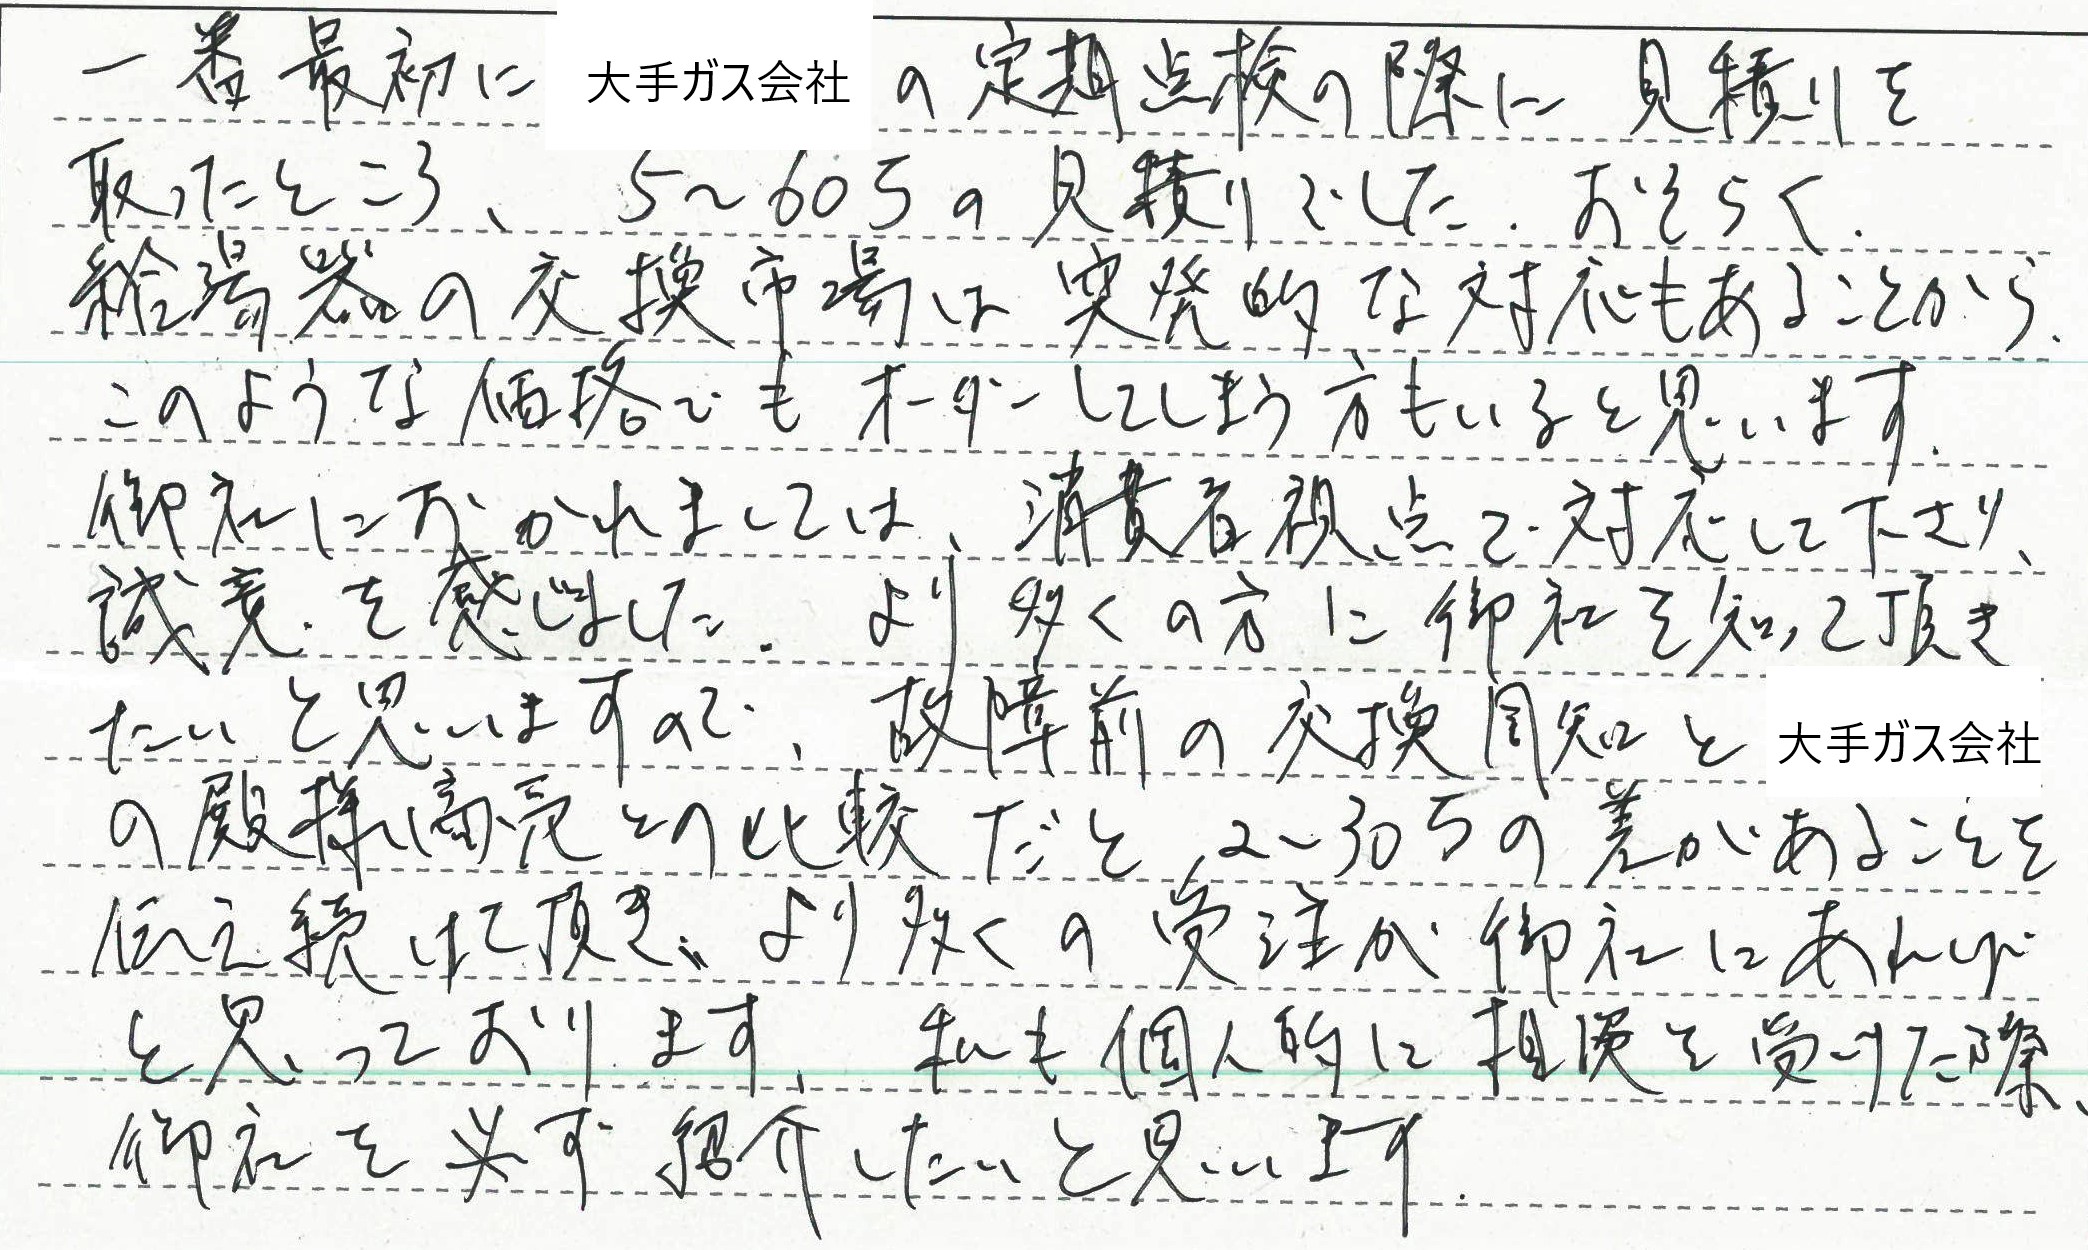 一番最初に大手ガス会社の定期点検の際に見積りを
取ったところ、5〜60万の見積りでした。おそらく、
給湯器の交換市場は突発的な対応もあることから、
このような価格でもオーダーしてしまう方もいると思います。
御社におかれましては、消費者視点で対応して下さり、
誠意を感じました。より多くの方に御社を知って頂き
たいと思いますので、故障前の交換周知と大手ガス会社
の殿様商売との比較だと、2〜30万の差があることを
伝え続けて頂き、より多くの受注が御社にあれば
と思っております。私も個人的に相談を受けた際、
御社を必ず紹介したいと思います。